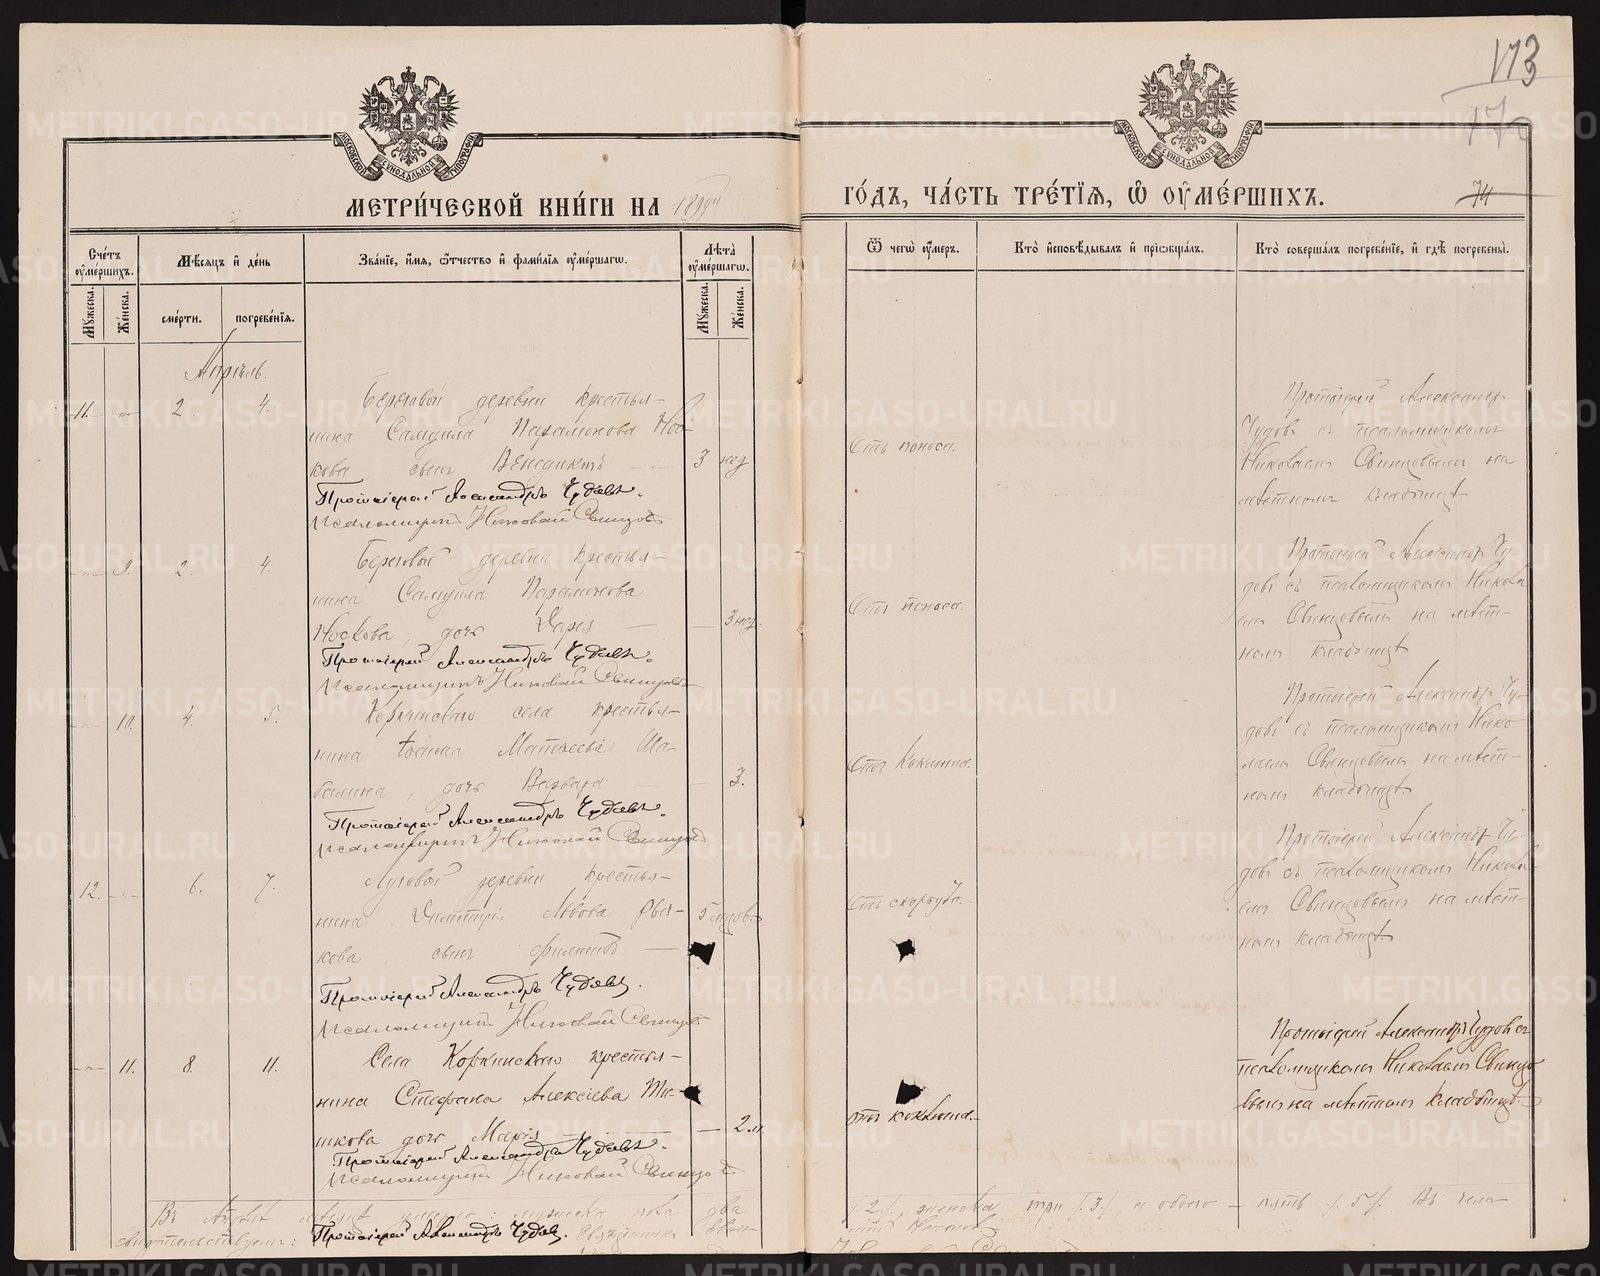 173
170
74
МОСКОВСКОЙ СѴНОДАЛЬНОЙ ТИПОГРАФІИ
МОСКОВСКОЙ СѴНОДАЛЬНОЙ ТИПОГРАФІИ
МЕТРИ́ЧЕСКОЙ КНИ́ГИ НА 1899й
ГО́ДЪ, ЧА́СТЬ ТРЕ́ТІЯ, Ѡ҆ ОУ҆МЕ́РШИХЪ.
Сче́тъ оу҆ме́ршихъ.
Мꙋжеска.
Же́нска.
Мѣ́сяцъ и҆ де́нь
сме́рти.
погребе́нїя.
Зва́нїе, и҆́мя, ѻ҆́тчество и҆ фами́лїя оу҆ме́ршагѡ.
Лѣ́та оу҆ме́ршагѡ.
Мꙋжеска.
Же́нска.
Ѿ чегѡ̀ оу҆́меръ.
Кто̀ и҆сповѣ́дывалъ и҆ прїѡбща́лъ.
Кто̀ соверша́лъ погребе́нїе, и҆ гдѣ̀ погребены̀.
Апрѣль.
11. -„- 2. 4.
Береговой деревни крестья-
нина Самуила Парамонова Нос-
кова сынъ Венедиктъ — 3 нед
Протоіерей Александръ Чудовъ.
Псаломщикъ Николай Свинцовъ
Отъ поноса.
Протоіерей Александръ
Чудовъ съ псаломщикомъ
Николаемъ Свинцовымъ на
мѣстномъ кладбищѣ
-„- 9. 2. 4.
Береговой деревни крестья-
нина Самуила Парамонова
Носкова, дочь Дарія — 3 нед.
Протоіерей Александръ Чудовъ.
Псаломщикъ Николай Свинцовъ
Отъ поноса.
Протоіерей Александръ Чу-
довъ съ псаломщикомъ Никола
емъ Свинцовымъ на мѣст-
номъ кладбищѣ
-„- 10. 4. 5.
Коркинскаго села крестья-
нина Іоанна Матѳеева Ша-
балина, дочь Варвара — 3.
Протоіерей Александръ Чудовъ.
Псаломщикъ Николай Свинцовъ
Отъ коклюша.
Протоіерей Александръ Чу-
довъ съ псаломщикомъ Нико
лаемъ Свинцовымъ на мѣст-
номъ кладбищѣ
12. -„- 6. 7.
Луговой деревни крестья-
нина Димитрія Львова
кова сынъ Филиппъ —
Протоіерей Александръ Чудовъ.
Псаломщикъ Николай Свинцовъ
Отъ скорбута.
Протоіерей Александръ Чу-
довъ съ псаломщикомъ Никола
емъ Свинцовымъ на мѣст-
номъ кладбищѣ.
-„- 11. 8. 11.
Села Коркинскаго крестья-
нина Стефана Алексіева Ти-
шкова дочь Марія — 2 м.
Протоіерей Александръ Чудовъ.
Псаломщикъ Николай Свинцовъ
отъ коклюша.
Протоіерей Александръ Чудовъ съ
псаломщикомъ Николаемъ Свинцо
вымъ на мѣстномъ кладбищѣ.
Въ Апрѣлѣ мѣсяцѣ умерло: мужеска пола два /2/, женска три /3/, а обоего — пять /5/. Въ чемъ
свидѣтельствуемъ: Протоіерей Александръ Чудовъ. Священникъ
METRIKI.GASO-URAL.RU